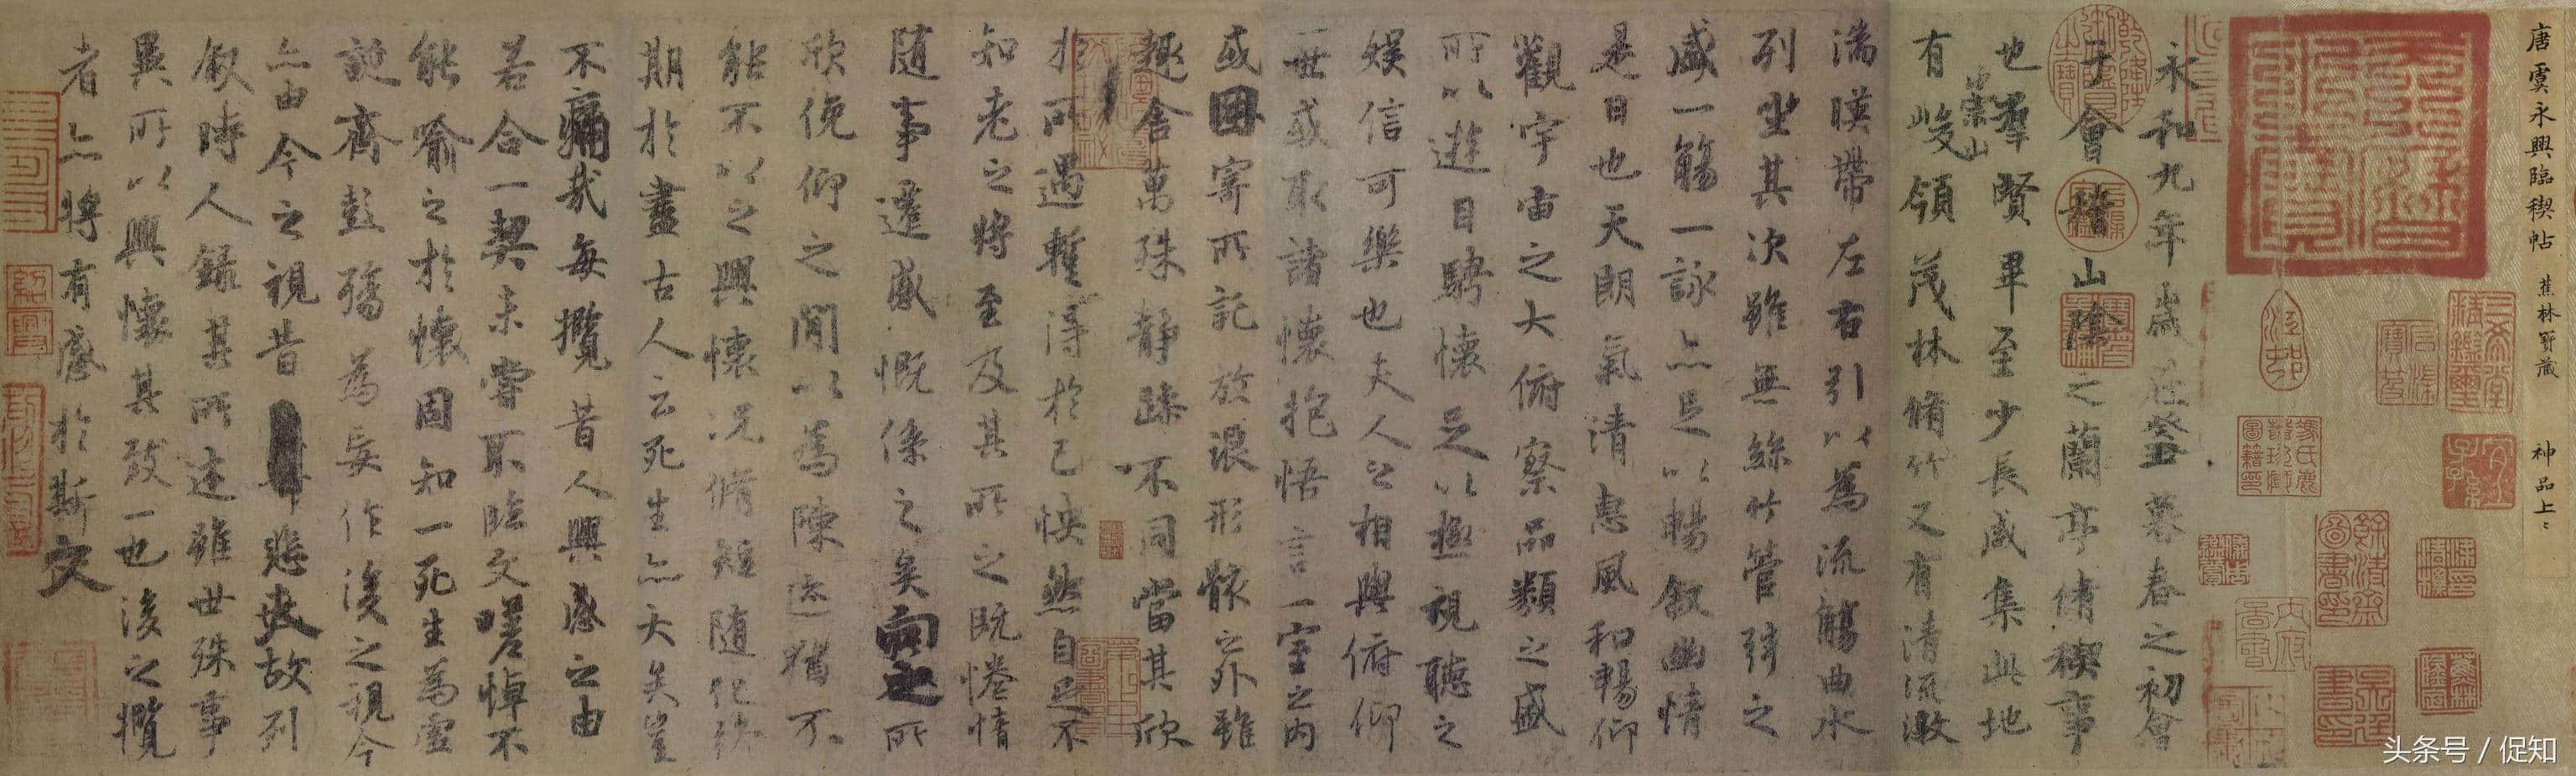 唐虞永興臨禊帖 蕉林 藏 神品上上
永和九年歲在癸丑暮春之初會
于會稽山陰之蘭亭脩禊事
也羣賢畢至少長咸集此地
有崇山峻領茂林脩竹又有清流激
湍暎帶左右引以為流觴曲水
列坐其次雖無絲竹管弦之
盛一觴一詠亦足以暢敘幽情
是日也天朗氣清惠風和暢仰
觀宇宙之大俯察品類之盛
所以遊目騁懷足以極視聽之
娛信可樂也夫人之相與俯仰
一世或取諸懷抱悟言一室之內
或因寄所託放浪形骸之外雖
趣舍萬殊靜躁不同當其欣
於所遇暫得於己怏然自足不
知老之將至及其所之既惓情
隨事遷感慨係之矣向之所
欣俛仰之閒以為陳迹猶不
能不以之興懷況脩短隨化終
期於盡古人云死生亦大矣豈
不痛哉每攬昔人興感之由
若合一契未嘗不臨文嗟悼不
能喻之於懷固知一死生為虛
誕齊彭殤為妄作後之視今
亦由今之視昔悲夫故列
敘時人錄其所述雖世殊事
異所以興懷其致一也後之攬
者亦將有感於斯文
头条号 / 促知